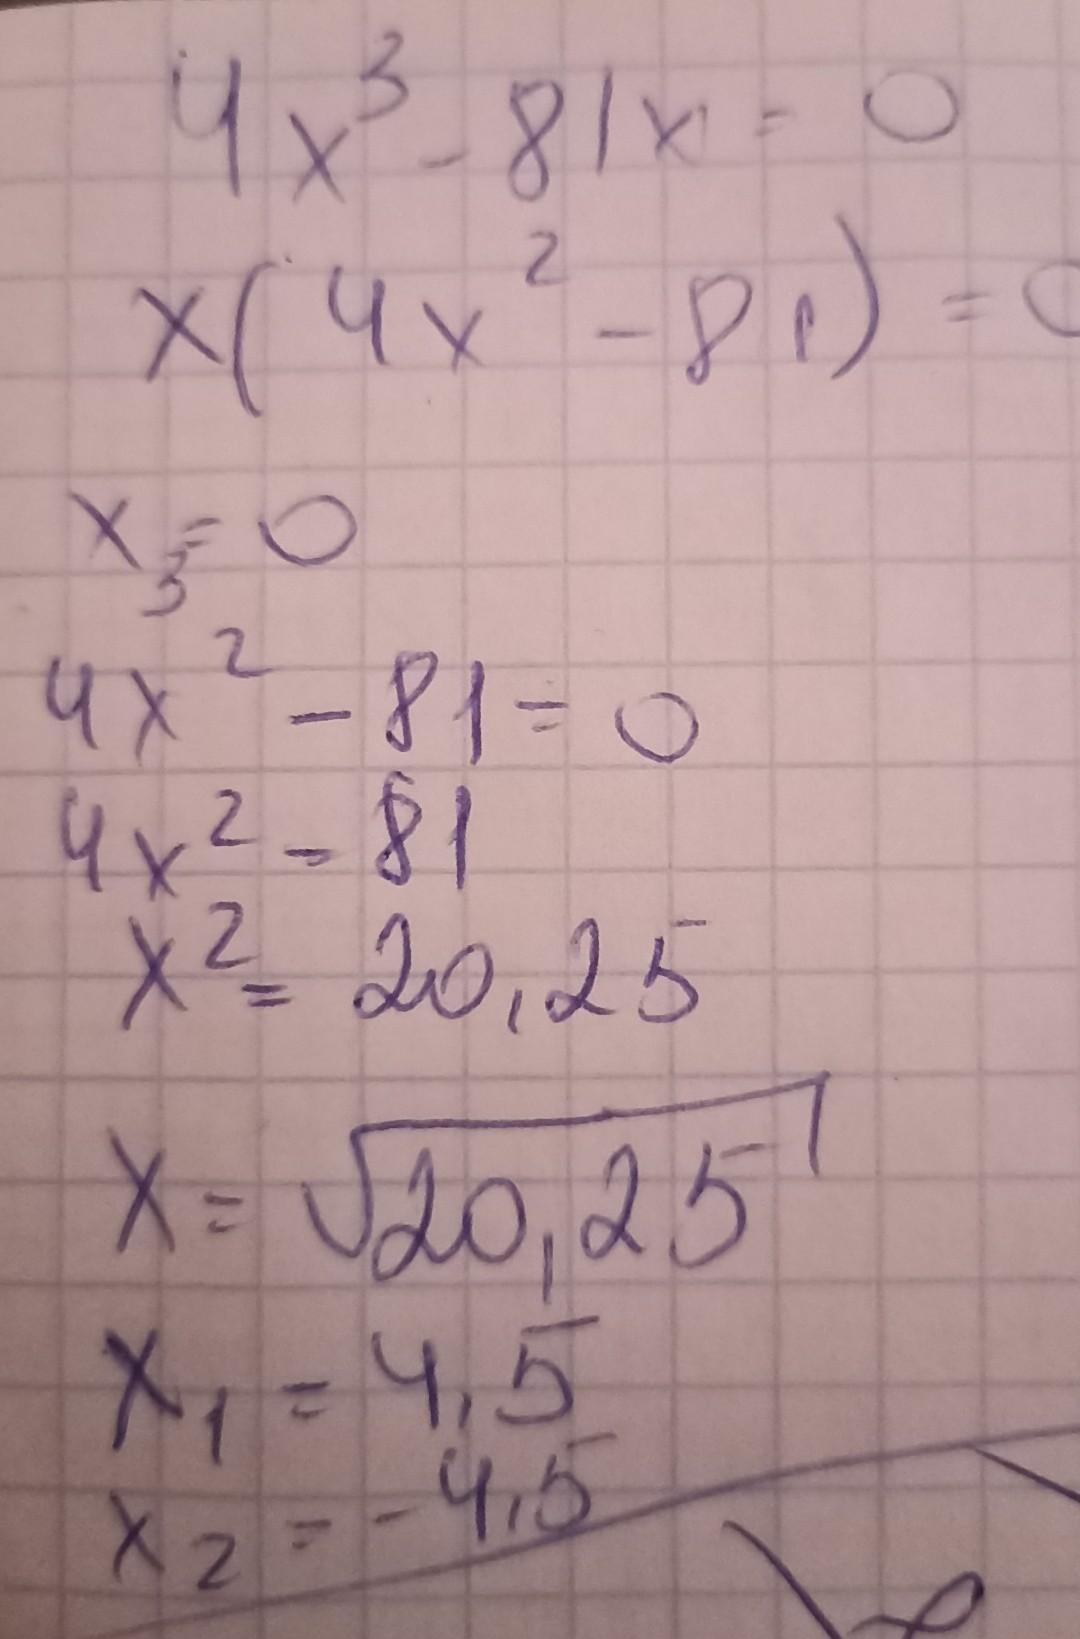 4x³ - 81x = 0
x(4x² - 81) = 0
x₃ = 0
4x² - 81 = 0
4x² = 81
x² = 20,25
x = √20,25
x₁ = 4,5
x₂ = -4,5